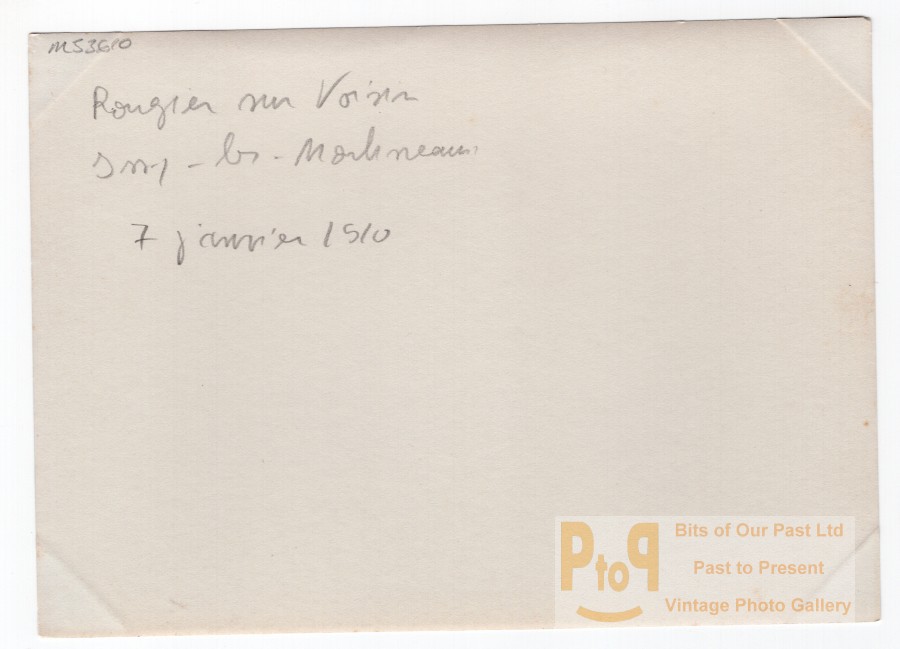 MS3610
Rougier sur Voisin
Issy-les-Moulineaux
7 janvier 1910
PtoP
Bits of Our Past Ltd
Past to Present
Vintage Photo Gallery